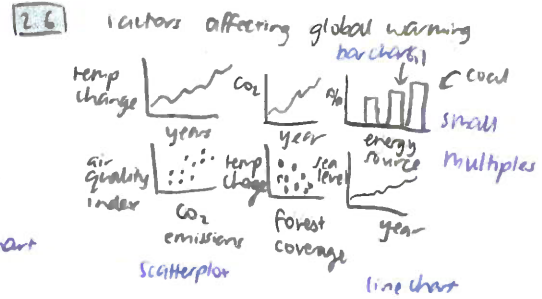 26 factors affecting global warming
bar chart
temp change
years
CO2
year
energy source
coal
small multiples
air quality index
CO2 emissions
temp change
forest coverage
sea level
year
scatterplot
line chart